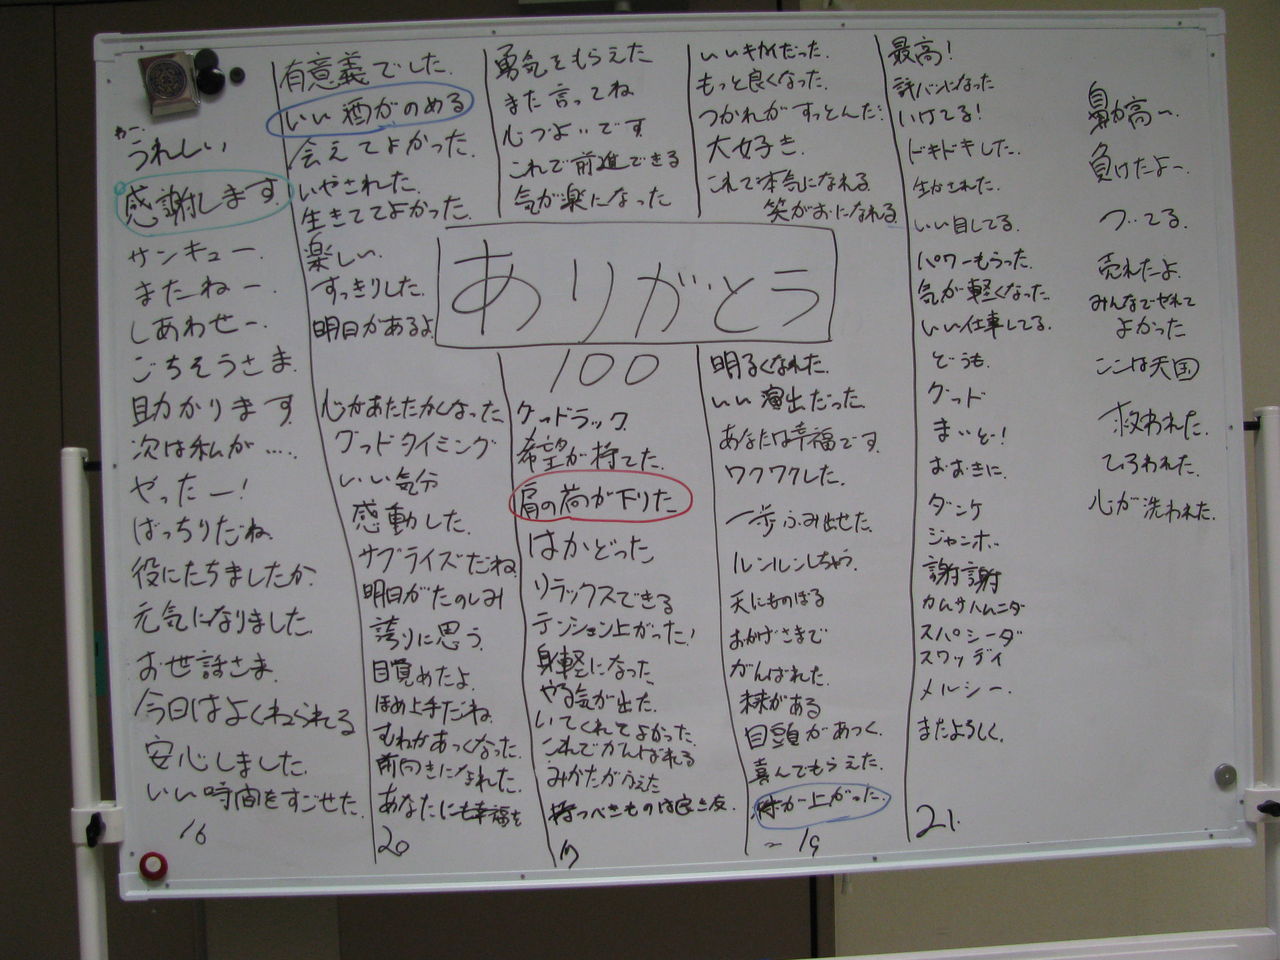 わー、
うれしい
感謝します
サンキュー
またねー
しあわせー
ごちそうさま
助かります
次は私が……
やったー!
ばっちりだね
役にたちましたか
元気になりました
お世話さま
今日はよくねられる
安心しました
いい時間をすごせた
16
有意義でした
いい酒がのめる
会えてよかった
いやされた
生きててよかった
楽しい
すっきりした
明日があるよ
心があたたかくなった
グッドタイミング
いい気分
感動した
サプライズだね
明日がたのしみ
誇りに思う
目覚めたよ
ほめ上手だね
むねがあつくなった
前向きになれた
あなたにも幸福を
20
勇気をもらえた
また言ってね
心づよいです
これで前進できる
気が楽になった
ありがとう
100
グッドラック
希望が持てた
肩の荷が下りた
はかどった
リラックスできる
テンション上がった!
身軽になった
やる気が出た
いてくれてよかった
これでがんばれる
みかたがふえた
持つべきものは良き友
いいキカイだった
もっと良くなった
つかれがすっとんだ
大好き
これで本気になれる
笑がおになれる
明るくなれた
いい演出だった
あなたは幸福です
ワクワクした
一歩ふみ出せた
ルンルンしちゃう
天にものぼる
おかげさまで
がんばれた
味がある
目頭があつく
喜んでもらえた
株が上がった
19
最高!
評バンになった
いけてる!
ドキドキした
生かされた
いい目してる
パワーもらった
気が軽くなった
いい仕事してる
どうも
グッド
まいど!
おおきに
ダンケ
ジャンボ
謝謝
カムサハムニダ
スパシーダ
スワッディ
メルシー
またよろしく
21
鼻が高ー
負けたよー
ついてる
売れたよ
みんなでやれて
よかった
ここは天国
救われた
ひろわれた
心が洗われた